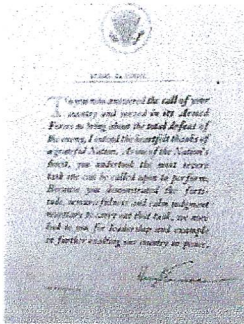 To you who answered the call of your
country and served in its Armed
Forces to bring about the total defeat of
the enemy, I extend the heartfelt thanks of
a grateful Nation. As one of the Nation's
finest, you undertook the most severe
task one can be called upon to perform.
Because you demonstrated the forti-
tude, resourcefulness and calm judgment
necessary to carry out that task, we now
look to you for leadership and example
in further exalting our country in peace.